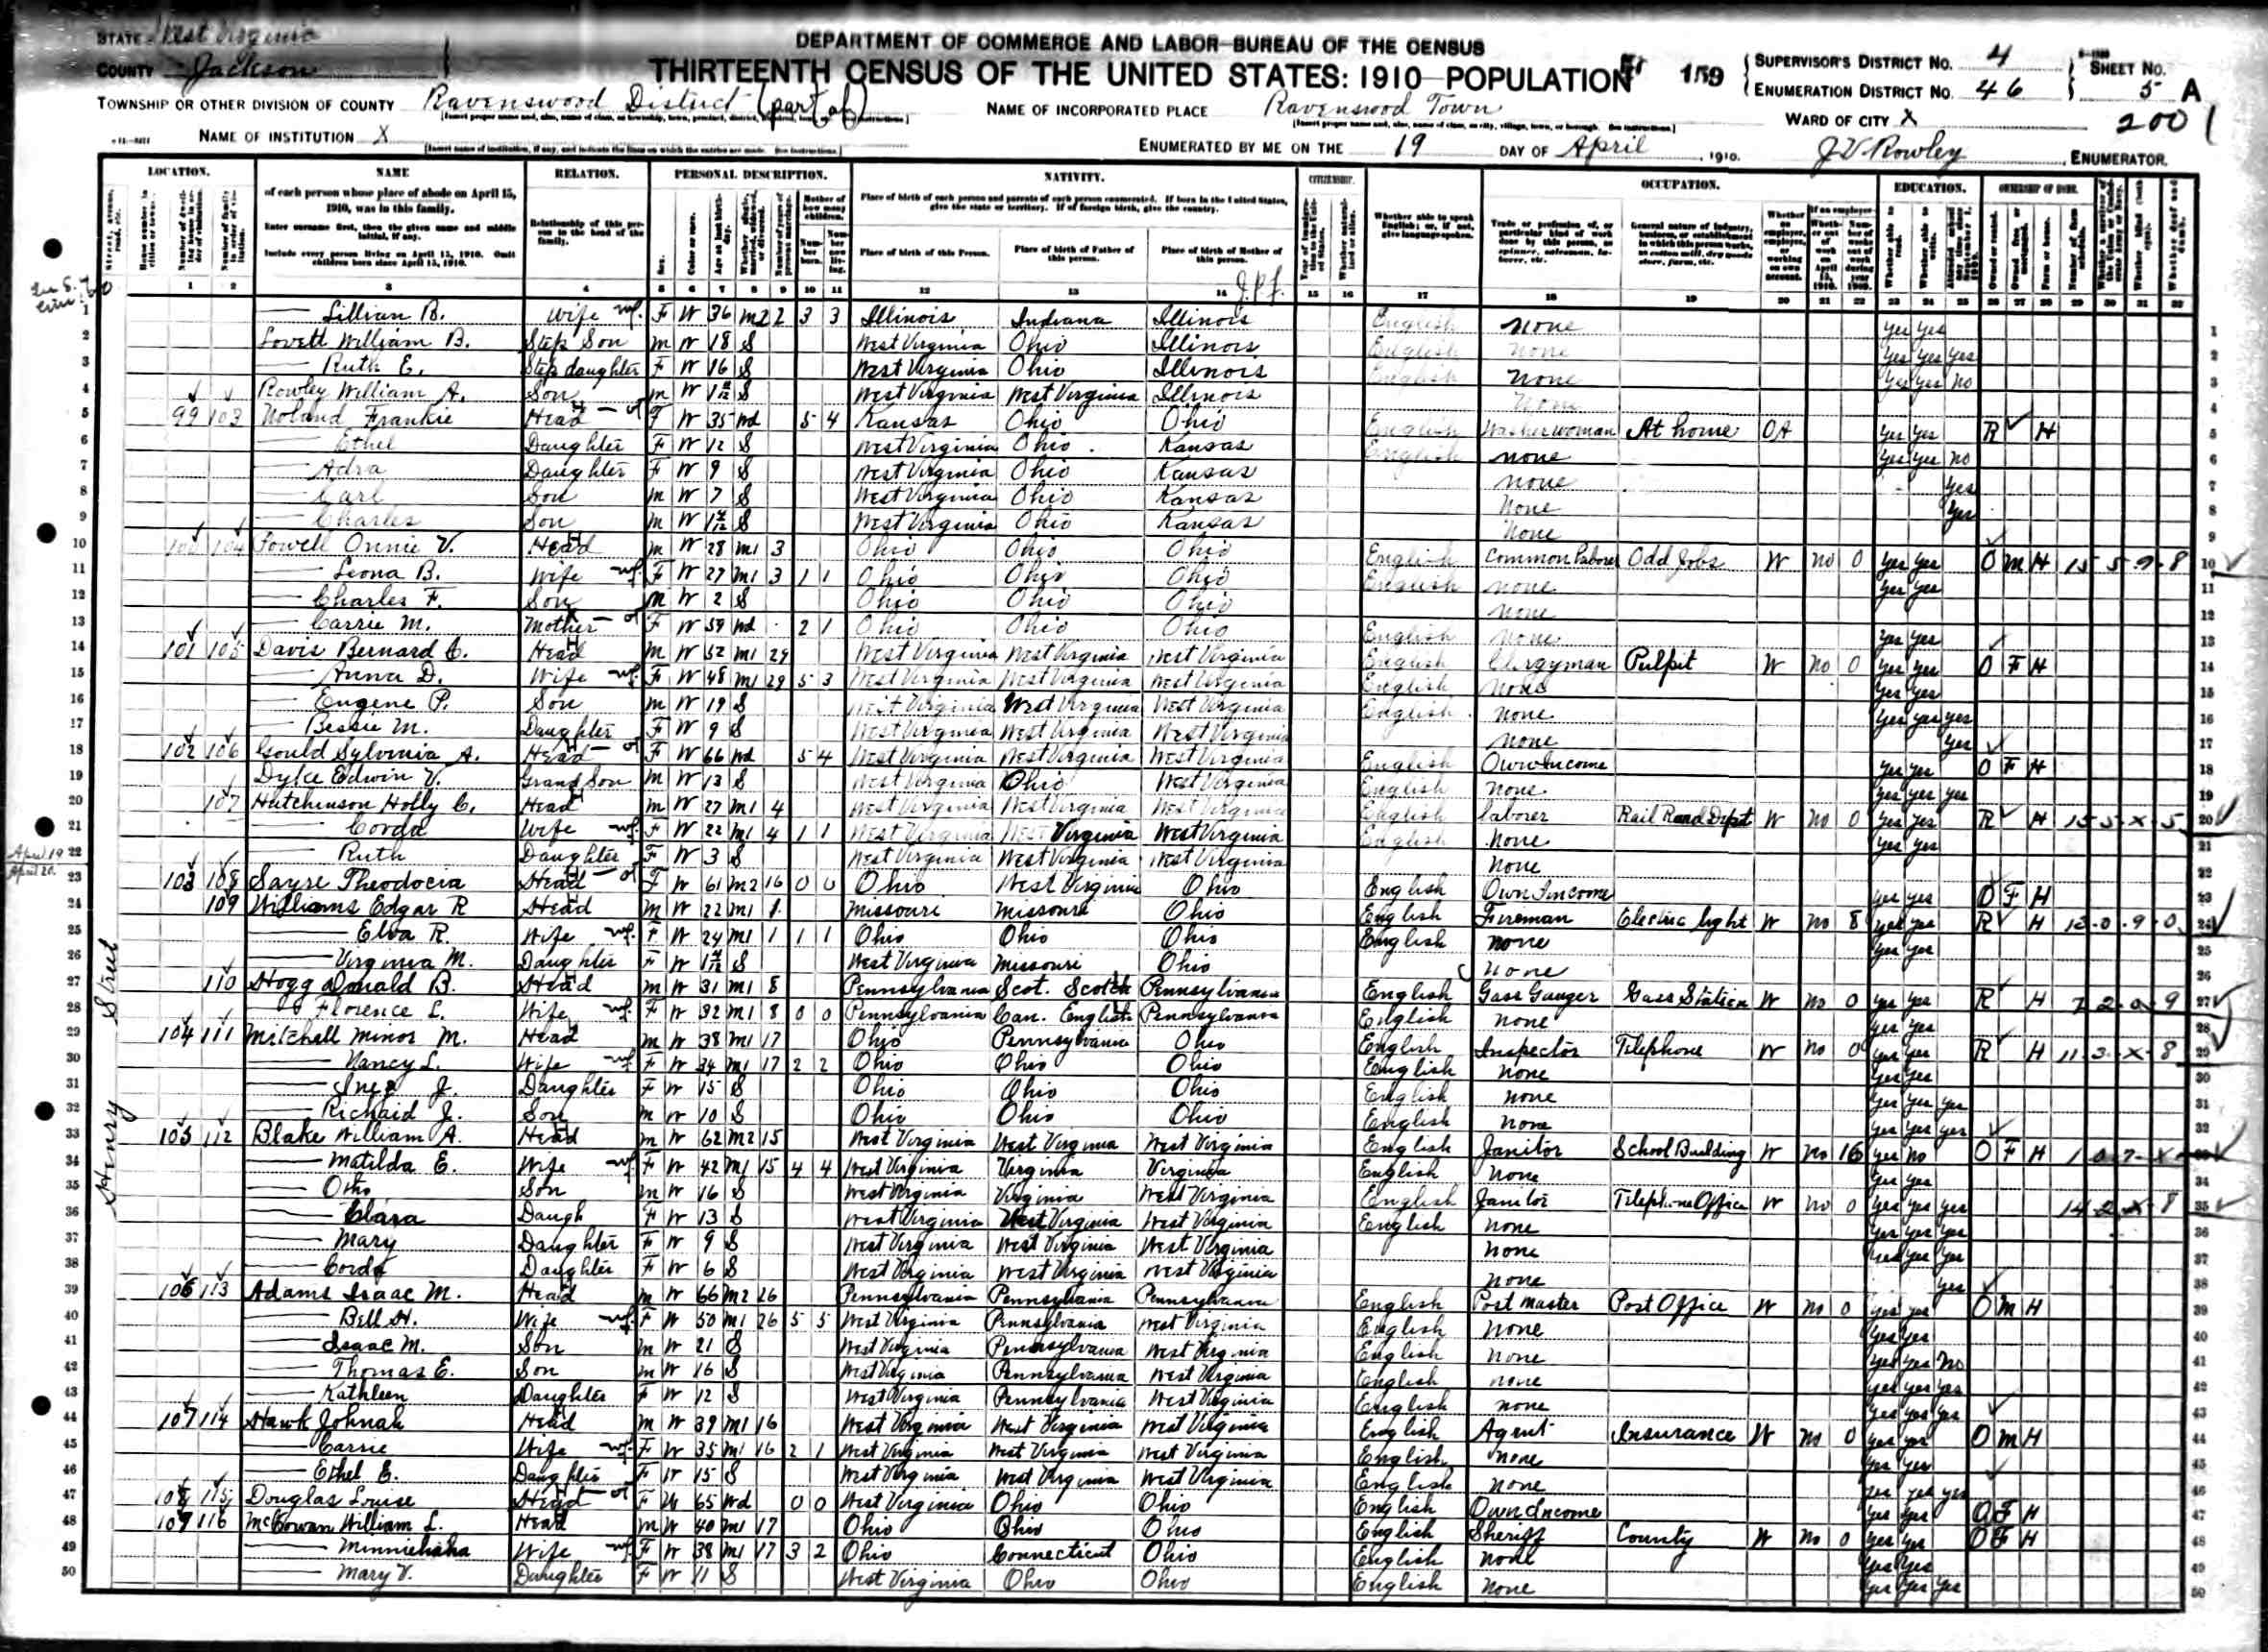 STATE West Virginia
COUNTY Jackson
DEPARTMENT OF COMMERCE AND LABOR-BUREAU OF THE CENSUS
THIRTEENTH CENSUS OF THE UNITED STATES: 1910-POPULATION
159
SUPERVISOR'S DISTRICT NO. 4
ENUMERATION DISTRICT NO. 46
SHEET NO. 5 A
TOWNSHIP OR OTHER DIVISION OF COUNTY Ravenswood District (part of)
NAME OF INCORPORATED PLACE Ravenswood Town
WARD OF CITY X
2001
NAME OF INSTITUTION X
ENUMERATED BY ME ON THE 19 DAY OF April, 1910.
J V Rowley, ENUMERATOR.
LOCATION. NAME RELATION. PERSONAL DESCRIPTION. NATIVITY. CITIZENSHIP. OCCUPATION. EDUCATION. OWNERSHIP OF HOME.
of each person whose place of abode on April 15, 1910, was in this family.
Enter surname first, then the given name and middle initial, if any.
Include every person living on April 15, 1910. Omit children born since April 15, 1910.
Relationship of this person to the head of the family.
Place of birth of each person and parents of each person enumerated. If born in the United States, give the state or territory. If of foreign birth, give the country.
Place of birth of this Person. Place of birth of Father of this person. Place of birth of Mother of this person.
Whether able to speak English; or, if not, give language spoken.
1 Lillian B. Wife F W 36 M2 2 3 3 Illinois Indiana Illinois English None yes yes
2 Lovett William B. Step Son M W 18 S West Virginia Ohio Illinois English None yes yes yes
3 Ruth E. Step daughter F W 16 S West Virginia Ohio Illinois English None yes yes no
4 Rowley William A. Son M W S West Virginia West Virginia Illinois None
5 99 103 Noland Frankie Head F W 35 Wd 5 4 Kansas Ohio Ohio English Washerwoman At home OA yes yes R H
6 Ethel Daughter F W 12 S West Virginia Ohio Kansas English None yes yes no
7 Adra Daughter F W 9 S West Virginia Ohio Kansas None yes
8 Carl Son M W 7 S West Virginia Ohio Kansas None yes
9 Charles Son M W S West Virginia Ohio Kansas None
10 100 104 Powell Onnie V. Head M W 28 M1 3 Ohio Ohio Ohio English Common Laborer Odd Jobs W no 0 yes yes O M H 15 5-9-8
11 Leona B. Wife F W 27 M1 3 1 1 Ohio Ohio Ohio English None yes yes
12 Charles F. Son M W 2 S Ohio Ohio Ohio None
13 Carrie M. Mother F W 59 Wd 2 1 Ohio Ohio Ohio English None yes yes
14 101 105 Davis Bernard C. Head M W 52 M1 29 West Virginia West Virginia West Virginia English Clergyman Pulpit W no 0 yes yes O F H
15 Anna D. Wife F W 48 M1 29 5 3 West Virginia West Virginia West Virginia English None yes yes
16 Eugene P. Son M W 19 S West Virginia West Virginia West Virginia English None yes yes yes
17 Bessie M. Daughter F W 9 S West Virginia West Virginia West Virginia None yes
18 102 106 Gould Sylvinia A. Head F W 66 Wd 5 4 West Virginia West Virginia West Virginia English Own Income yes yes O F H
19 Dyke Edwin V. Grand Son M W 13 S West Virginia Ohio West Virginia English None yes yes yes
20 107 Hutchinson Holly C. Head M W 27 M1 4 West Virginia West Virginia West Virginia English Laborer Rail Road W no 0 yes yes R H 15 5-X-5
21 Corda Wife F W 22 M1 4 1 1 West Virginia West Virginia West Virginia English None yes yes
April 19 22 Ruth Daughter F W 3 S West Virginia West Virginia West Virginia None
April 20 23 103 108 Sayre Theodocia Head F W 61 M2 16 0 0 Ohio West Virginia Ohio English Own Income yes yes O F H
24 109 Williams Edgar R Head M W 22 M1 1 Missouri Missouri Ohio English Fireman Electric light W no 8 yes yes R H 12-0-9-0
25 Elva R. Wife F W 24 M1 1 1 1 Ohio Ohio Ohio English None yes yes
26 Virginia M. Daughter F W S West Virginia Missouri Ohio None
27 110 Hogg Donald B. Head M W 31 M1 8 Pennsylvania Scot. Scotch Pennsylvania English Gass Gauger Gass Station W no 0 yes yes R H 7 2-0-9
28 Florence L. Wife F W 32 M1 8 0 0 Pennsylvania Can. English Pennsylvania English None yes yes
29 104 111 Mitchell Minos M. Head M W 38 M1 17 Ohio Pennsylvania Ohio English Inspector Telephone W no 0 yes yes R H 11 3-X-8
30 Nancy L. Wife F W 34 M1 17 2 2 Ohio Ohio Ohio English None yes yes
31 Inez J. Daughter F W 15 S Ohio Ohio Ohio English None yes yes yes
32 Richard J. Son M W 10 S Ohio Ohio Ohio English None yes yes yes
33 105 112 Blake William A. Head M W 62 M2 15 West Virginia West Virginia West Virginia English Janitor School Building W no 16 yes no O F H 1 0-7-X
34 Matilda E. Wife F W 42 M1 15 4 4 West Virginia Virginia Virginia English None yes yes
35 Otho Son M W 16 S West Virginia Virginia West Virginia English Janitor Telephone Office W no 0 yes yes yes 14 2-X-8
36 Clara Daugh F W 13 S West Virginia West Virginia West Virginia English None yes yes yes
37 Mary Daughter F W 9 S West Virginia West Virginia West Virginia None yes yes yes
38 Corda Daughter F W 6 S West Virginia West Virginia West Virginia None yes
39 106 113 Adams Isaac M. Head M W 66 M2 26 Pennsylvania Pennsylvania Pennsylvania English Post Master Post Office W no 0 yes yes O M H
40 Bell H. Wife F W 50 M1 26 5 5 West Virginia Pennsylvania West Virginia English None yes yes
41 Isaac M. Son M W 21 S West Virginia Pennsylvania West Virginia English None yes yes no
42 Thomas E. Son M W 16 S West Virginia Pennsylvania West Virginia English None yes yes yes
43 Kathleen Daughter F W 12 S West Virginia Pennsylvania West Virginia English None yes yes yes
44 107 114 Hawk Johnah Head M W 39 M1 16 West Virginia West Virginia West Virginia English Agent Insurance W no 0 yes yes O M H
45 Carrie Wife F W 35 M1 16 2 1 West Virginia West Virginia West Virginia English None yes yes
46 Ethel E. Daughter F W 15 S West Virginia West Virginia West Virginia English None yes yes yes
47 108 115 Douglas Louise Head F W 65 Wd 0 0 West Virginia Ohio Ohio English Own Income yes yes O F H
48 109 116 McKowan William L. Head M W 40 M1 17 Ohio Ohio Ohio English Sheriff County W no 0 yes yes O F H
49 Minniehaha Wife F W 38 M1 17 3 2 Ohio Connecticut Ohio English None yes yes
50 Mary V. Daughter F W 11 S West Virginia Ohio Ohio English None yes yes yes
Henry Street